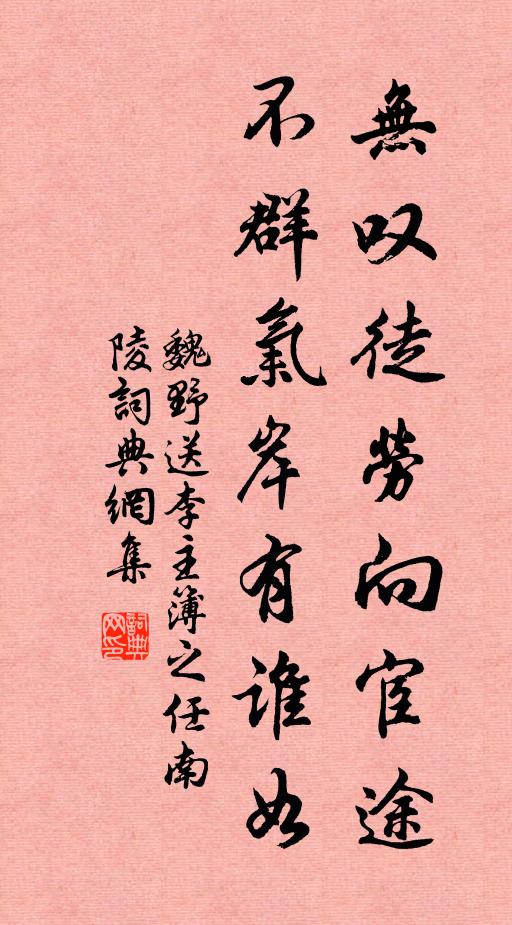 無叹徒勞向宦途
不群氣岸有誰如
魏野送李主簿之任南
陵詞典網集
詞典
网印